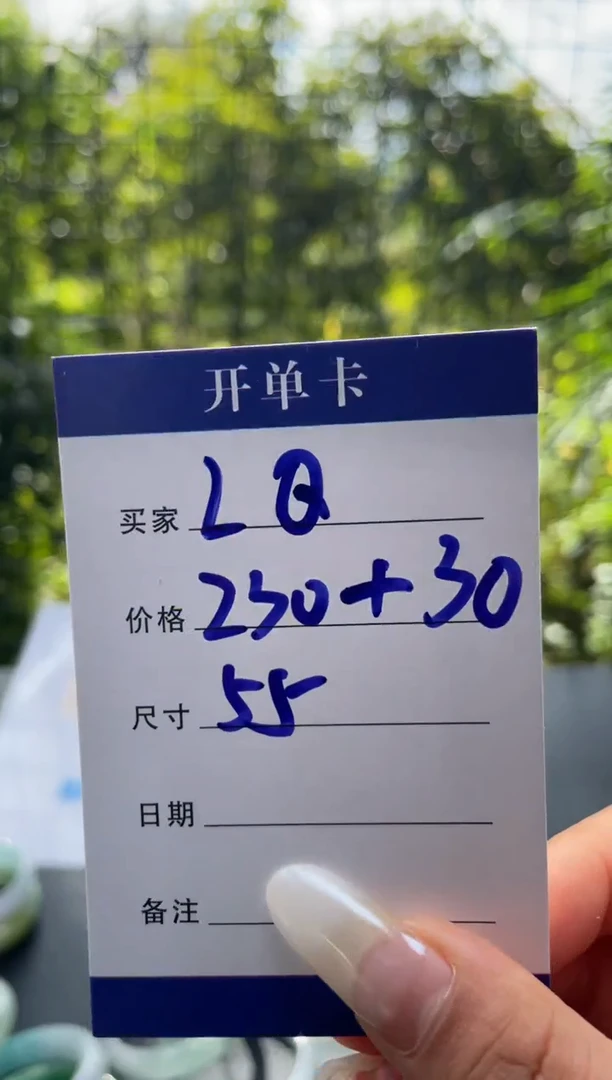 开单卡
买家 LQ
价格 250+30
尺寸 55
日期
备注